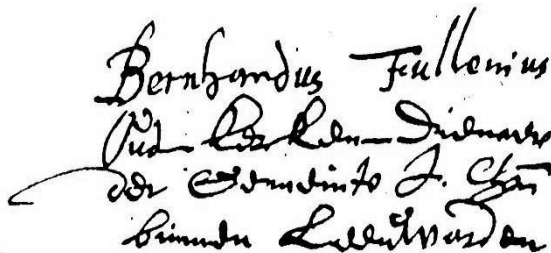 Bernhardus Fullenius
Out kercken Dienaer
der Gemeinte J. Chri
binnen Leeuwarden